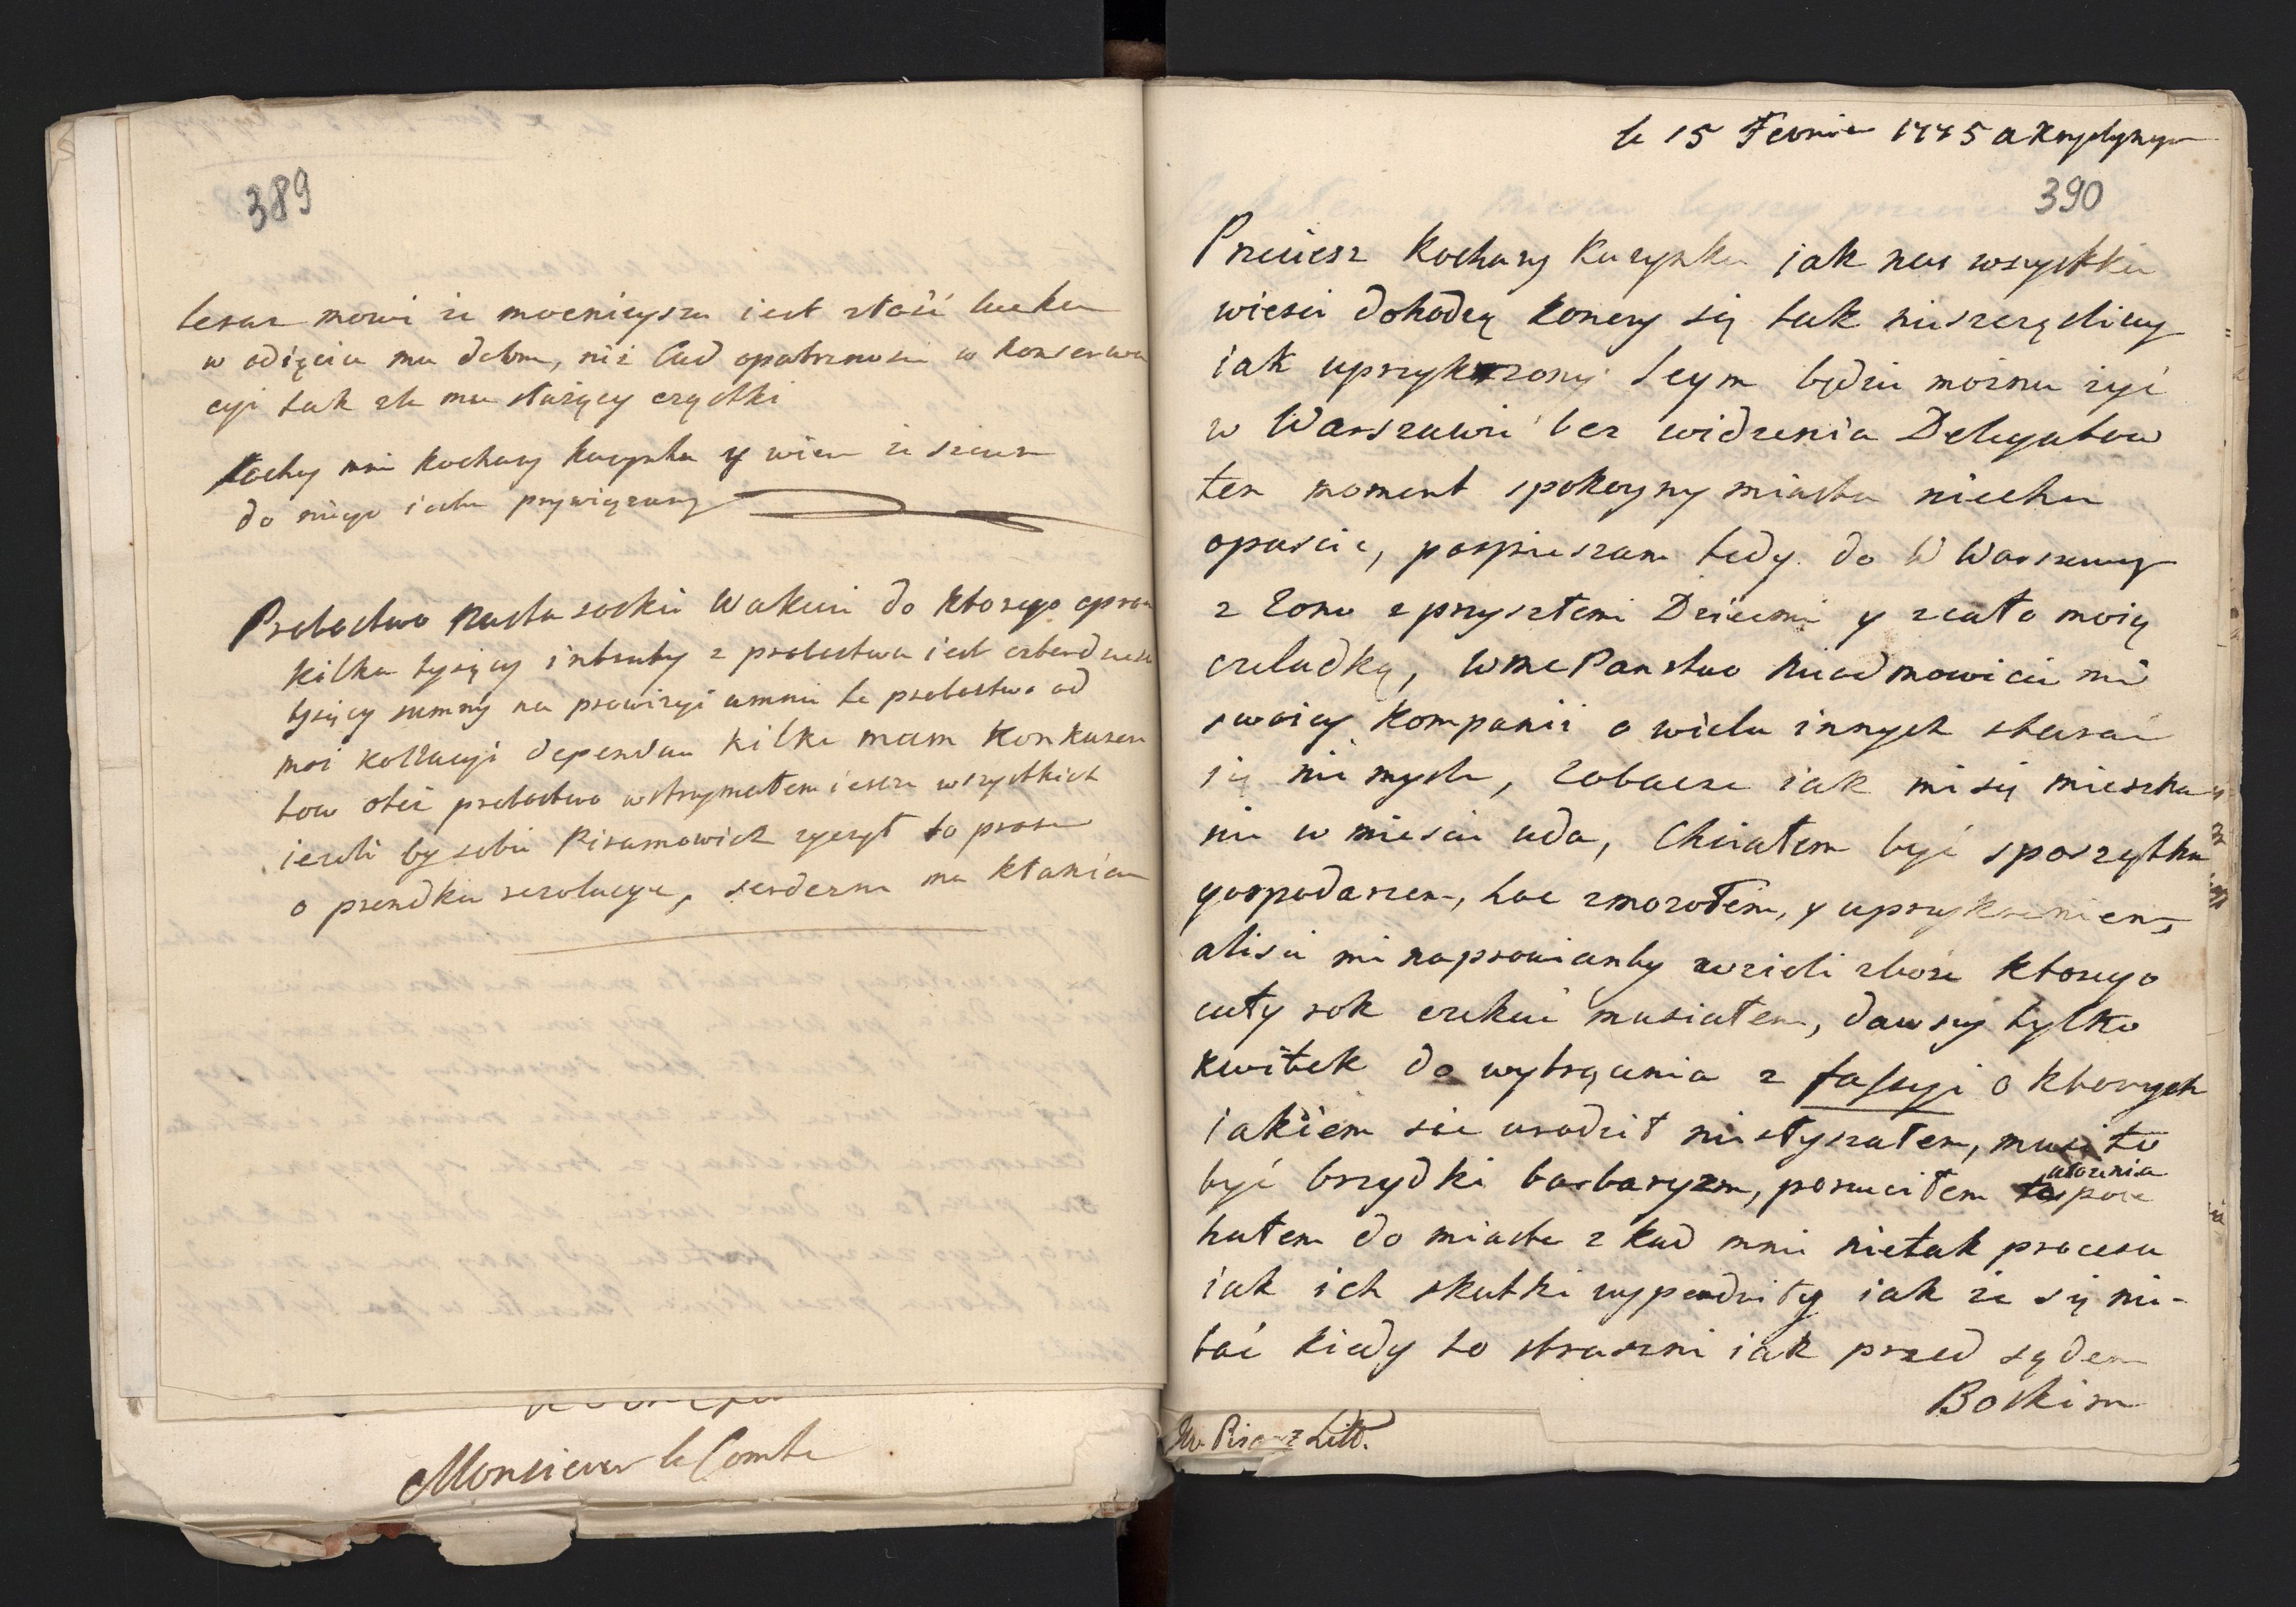 389
teraz mowi ze mocnieysza iest złość
w odięciu mu dobra, niż Cud opatrznosci w konserwa
cyi tak źle mu służącey cząstki
Kochay mie kochany Kuzynku y wierz ze szczerze
do niego iestem przywiązany
Probostwo Wakuie do ktorego oprocz
kilku tysięcy intraty z probostwa iest
tysięcy summy na prowizyi umnie te probostwo od
moi kollacyi dependuie kilku mam Konkuren
tow otoż probostwo wstrzymałem ieszcze wszystkich
iezeli by sobie Piramowicz zyczył to prosze
o prendka rezolucye, serdeczne mu kłaniam
Monsieur le Comte
le 15 Fevrier 1775 a Krystynopol
390
Przeciesz Kochany Kuzynku jak nas wszystkie
wiesci dohodzą konczy się tak nieszczęsliwy
iak uprzykrzony Seym będzie można żyć
w Warszawie bez widzenia Delegatow
ten moment spokoyny miasta niechce
opuscic, pospieszam tedy do W Warszawy
z Zono z przyszłemi Dziecmi y z cało moią
czeladką, WMc Panstwo nieodmowicie mi
swoiey kompanii o wielu innych starac
się nie mysle, Zobacze iak mi się mieszka
nie w miescie uda, Chciałem być spoczytku
gospodarzem, lecz z mozołem, y uprzykrzeniem,
alisci mi na prowianty wzieli zboże ktorego
cały rok czekać musiałem, dawszy tylko
kwitek do wytrącenia z fassyi o ktorych
iakiem sie urodził niesłyszałem, musi to
być brzydki barbaryzm, porzuciłem ułozenia
hałem do miasta z kad mnie nietak procesa
iak ich skutki wypendziły iak ze się nie-
bać kiedy to straszni iak przed sądem
Boskim
Pisarz Litt.